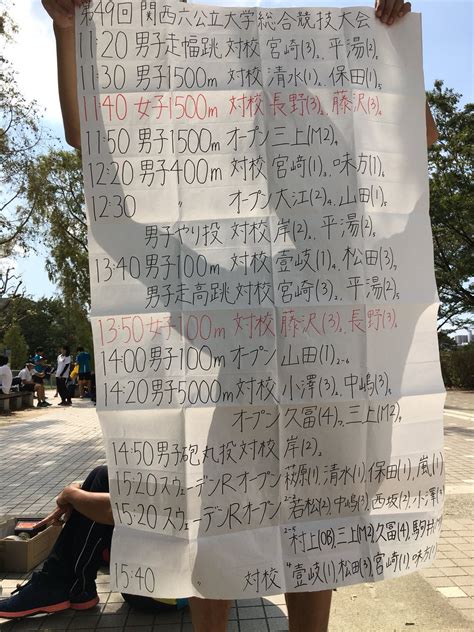 第49回関西六公立大学総合競技大会
11:20 男子走幅跳 対校 宮崎(3)、平湯(2)
11:30 男子1500m 対校 清水(1)、保田(1)
11:40 女子1500m 対校 長野(3)、藤沢(3)
11:50 男子1500m オープン 三上(M2)
12:20 男子400m 対校 宮崎(1)、味方(1)
12:30 〃 オープン 大江(2)、山田(1)
男子やり投 対校 岸(2)、平湯(2)
13:40 男子100m 対校 壹岐(1)、松田(3)
男子走高跳 対校 宮崎(3)、平湯(2)
13:50 女子100m 対校 藤沢(3)、長野(3)
14:00 男子100m オープン 山田(1)
14:20 男子5000m 対校 小澤(3)、中嶋(3)
オープン 久冨(4)、三上(M2)
14:50 男子砲丸投 対校 岸(2)
15:20 スウェーデンR オープン 萩原(1)、清水(1)、保田(1)、嵐(1)
15:20 スウェーデンR オープン 若松(2)、中嶋(3)、西坂(2)、小澤(3)
村上(OB)、三上(M2)、久冨(4)
15:40 〃 対校 壹岐(1)、松田(3)、宮崎(1)、味方(1)